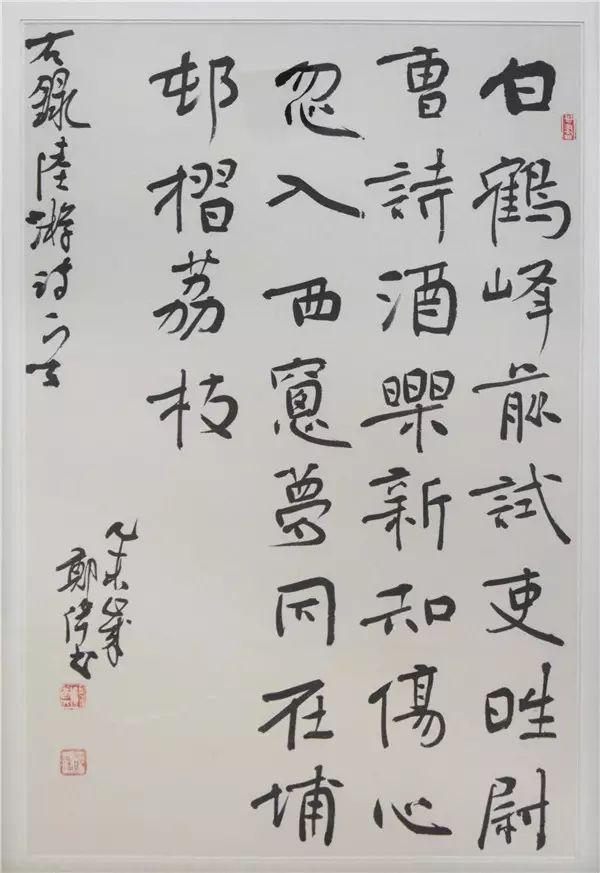 白鶴峰前試吏時尉
曹詩酒樂新知傷心
忽入西窻夢同在埔
邨摺荔枝
右録陸游詩一首
乙未歲
鄭偉書